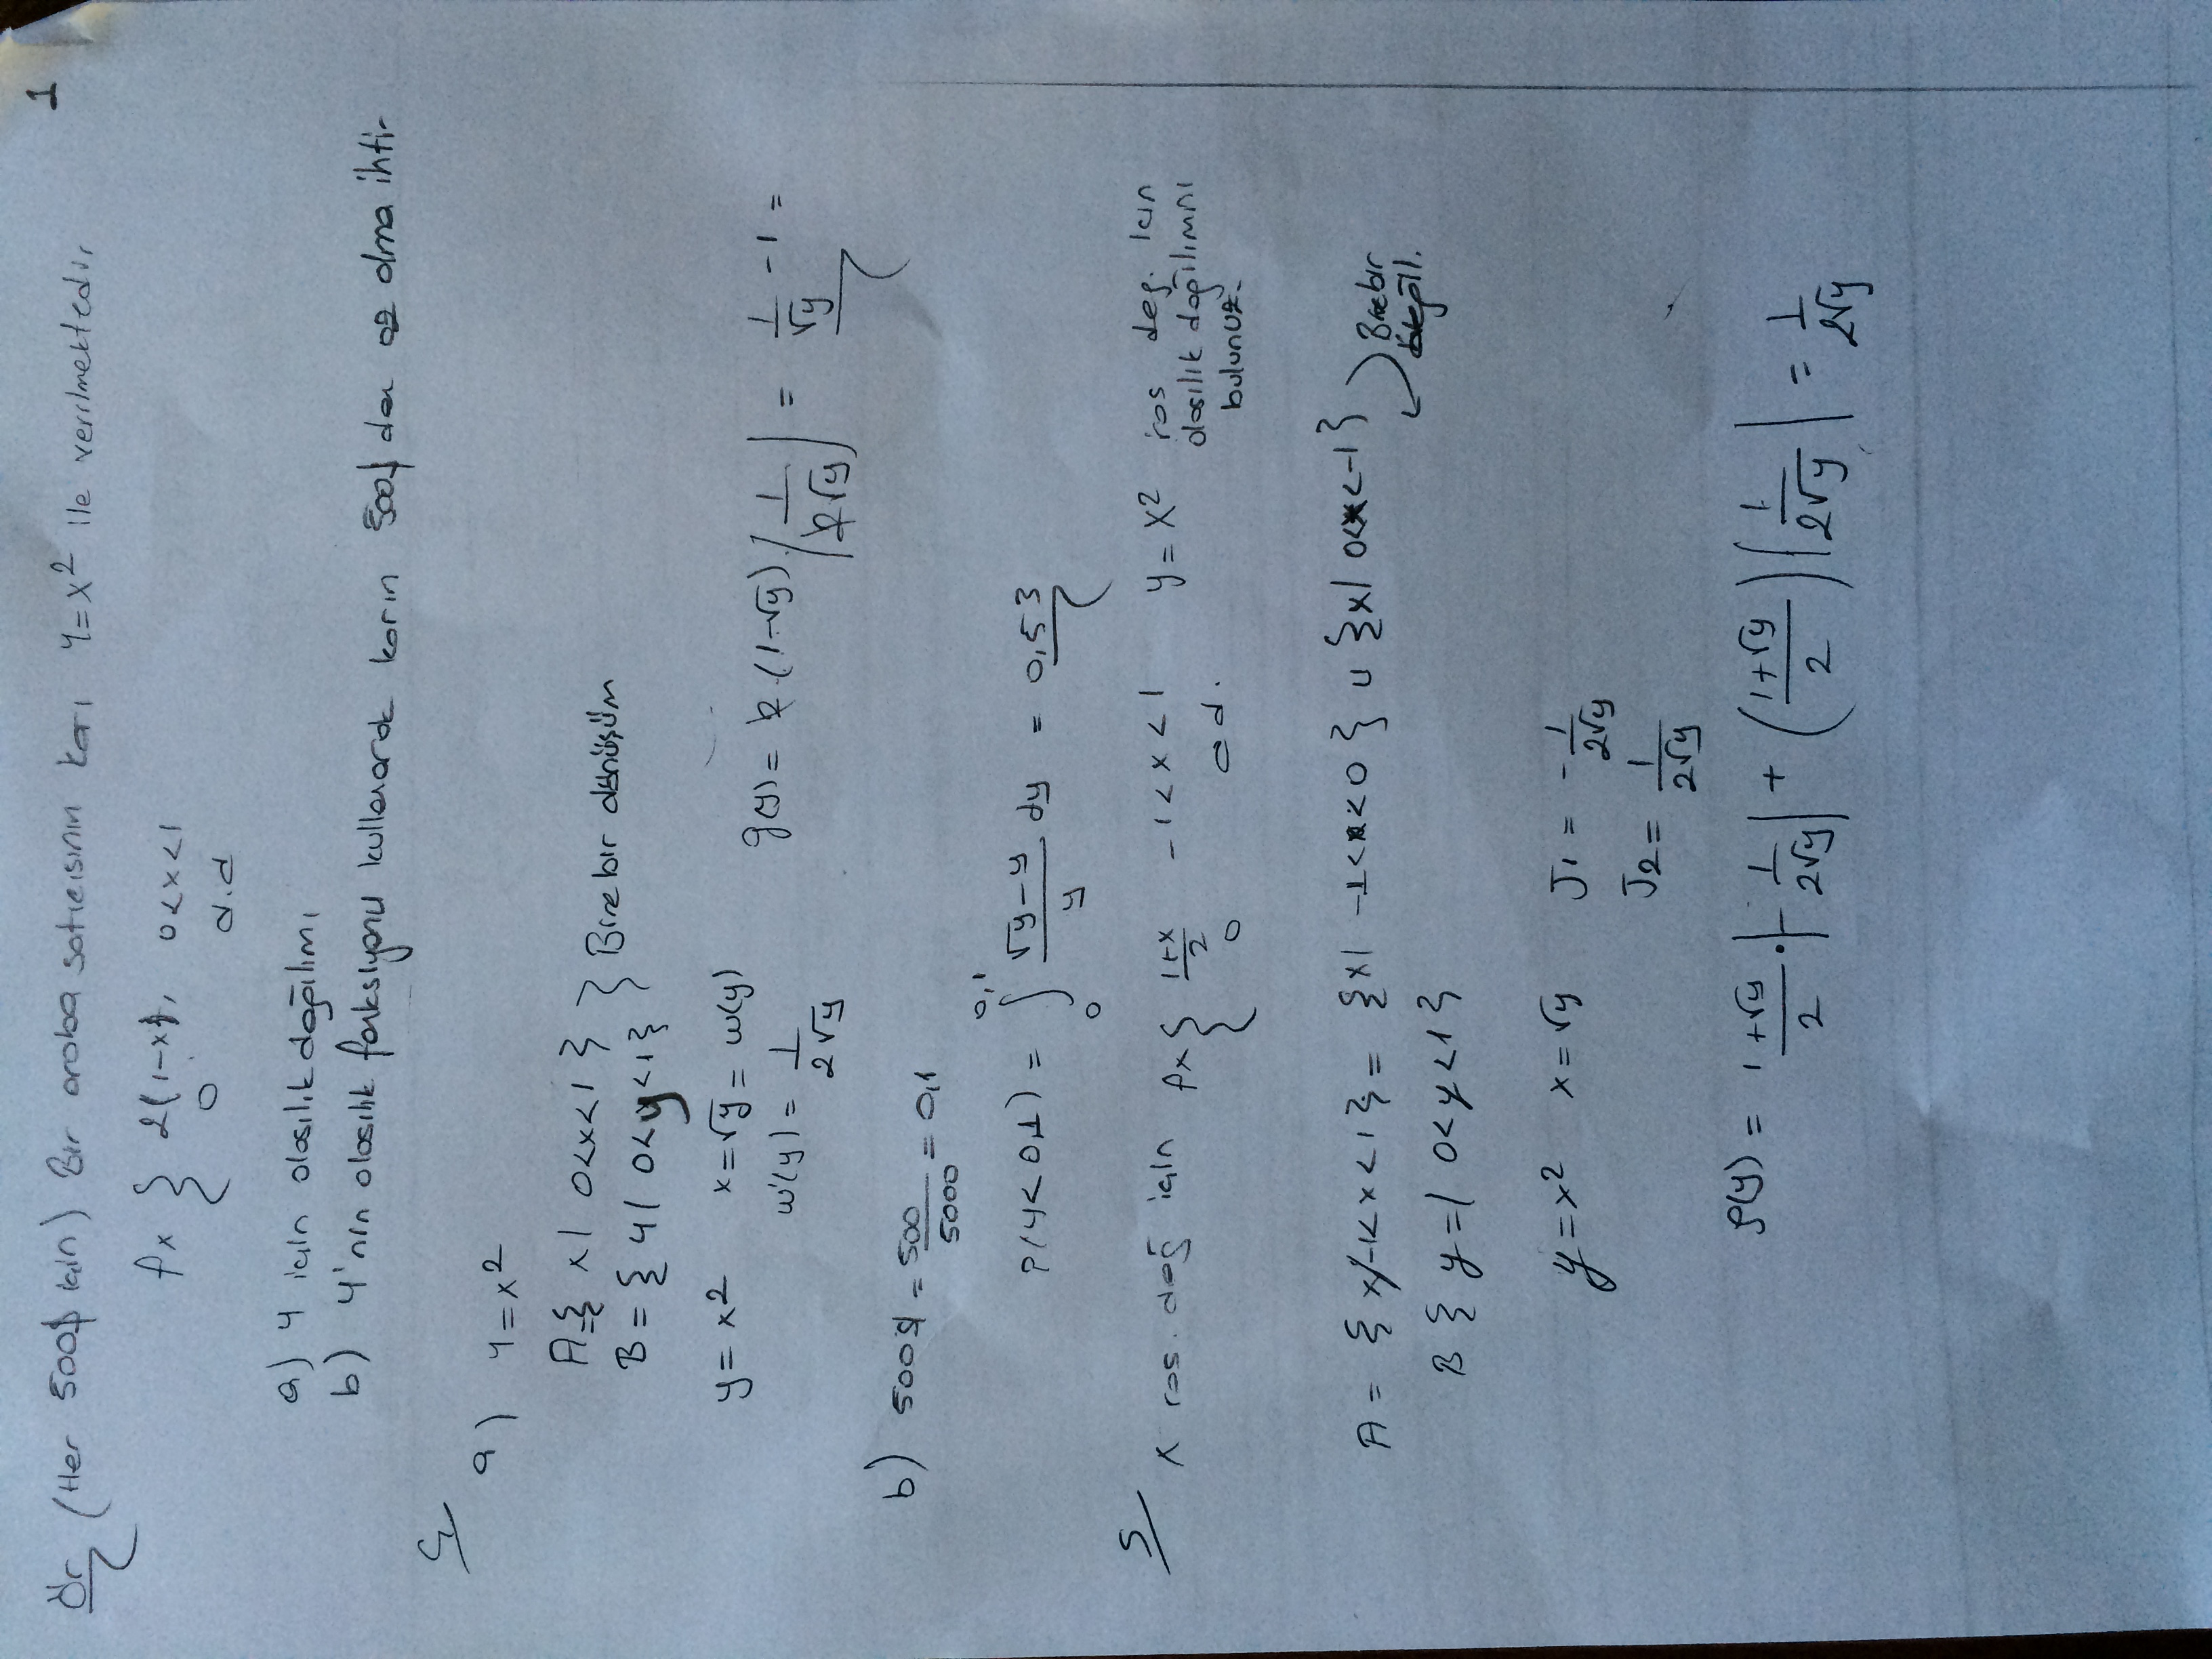 1
Ör (Her 500$ için) Bir araba satıcısının karı Y=x² ile verilmektedir
fx { 2(1-x), 0<x<1
0 d.d
a) Y için olasılık dağılımı
b) Y'nin olasılık fonksiyonu kullanarak karın 500$ dan az olma ihti-
Ç
a) Y=x²
A={ x| 0<x<1 }
B = { Y| 0<y<1 } } Birebir dönüşüm
y = x² x=√y = w(y)
w'(y) = 1/2√y g(y) = 2.(1-√y).|1/2√y| = 1/√y -1 =
b) 500$ = 500/5000 = 0,1
P(Y<0,1) = ∫₀^0,1 √y-y/y dy = 0,53
S
X ras. değ için fx { 1+x/2 -1<x<1 y=X² ras değ. için
0 a d. olasılık dağılımını
bulunuz.
A = { x/-1<x<1 } = {x| -1<x<0 } ∪ {x| 0<x<-1} Birebir
değil.
B { y=| 0<y<1 }
y=x² x=√y J1 = -1/2√y
J2 = 1/2√y
g(y) = 1+√y/2 . |-1/2√y| + (1+√y/2) |1/2√y| = 1/2√y